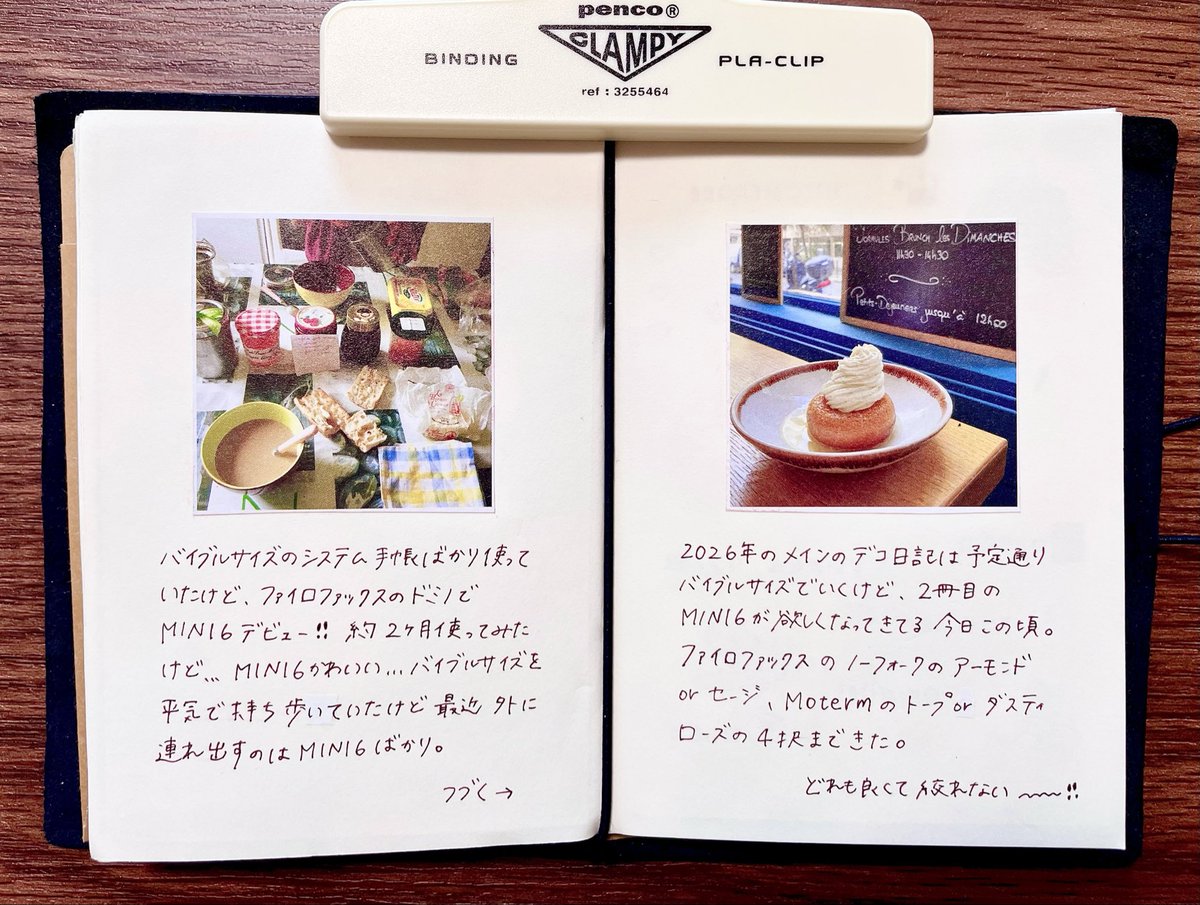 penco®
CLAMPY
BINDING
PLA-CLIP
ref : 3255464
バイブルサイズのシステム手帳ばかり使って
いたけど、ファイロファックスのドミノで
MINI6デビュー!! 約2ヶ月使ってみた
けど… MINI6かわいい… バイブルサイズを
平気で持ち歩いていたけど最近外に
連れ出すのはMINI6ばかり。
つづく→
FORMULES BRUNCH les DIMANCHES
11h30 - 14h30
Petits-Déjeuners jusqu'à 12h00
2026年のメインのデコ日記は予定通り
バイブルサイズでいくけど、2冊目の
MINI6が欲しくなってきてる今日この頃。
ファイロファックスのノーフォークのアーモンド
orセージ、Motermのトープorダスティ
ローズの4択まできた。
どれも良くて絞れない〜〜!!